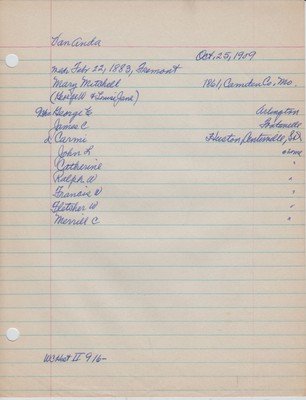 Van Anda
Oct. 25, 1959
md. Feb. 22, 1883, Fremont
Mary Mitchell 1861, Camden Co., Mo.
(George W & Louisa Jane)
George E Arlington
James C Fontanelle
Carmi Huston
John L
Catherine "
Ralph A "
Francis W "
Fletcher W "
Merrill C "
WCHist II 916-